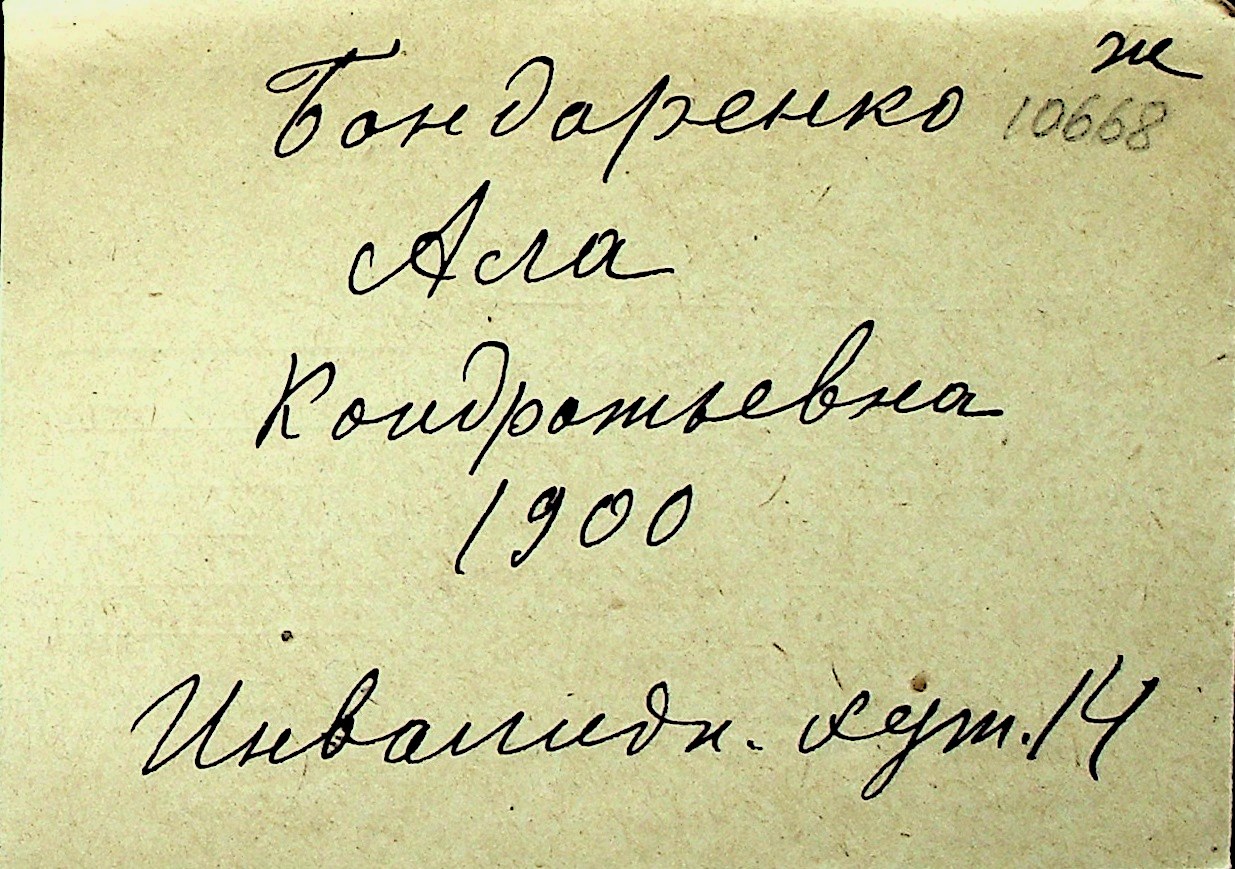 ж
Бондаренко 10668
Ала
Кондратьевна
1900
Инвалидн. хут. 14